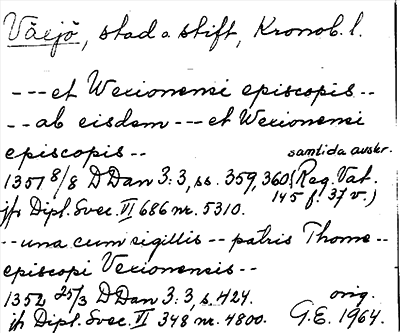 Växjö, stad o stift, Kronob. l.
---et Wexionensi episcopis--
--ab eisdem---et Wexionensi
episcopis--
samtida avskr.
1351 8/8 DDan 3:3, ss. 359, 360 (Reg. Vat.
145 f. 37 v.)
jfr Dipl. Svec. VI 686 nr. 5310.
--una cum sigillis--patris Thome--
episcopi Vexionensis--
1352 25/3 DDan 3:3, s. 424. orig.
jfr Dipl. Svec. VI 348 nr. 4800. G.E. 1964.